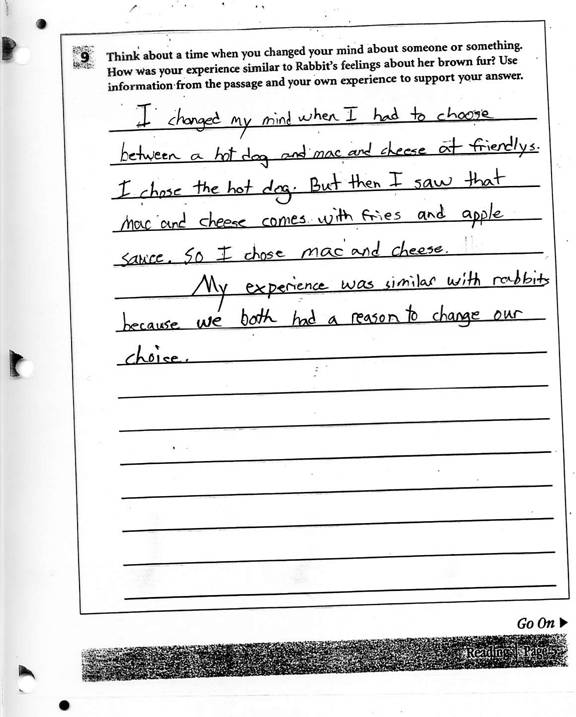 9 Think about a time when you changed your mind about someone or something.
How was your experience similar to Rabbit's feelings about her brown fur? Use
information from the passage and your own experience to support your answer.
I changed my mind when I had to choose
between a hot dog and mac and cheese at friendlys.
I chose the hot dog. But then I saw that
mac and cheese comes with fries and apple
sauce. So I chose mac and cheese.
My experience was similar with rabbits
because we both had a reason to change our
choice.
Go On
Reading Page